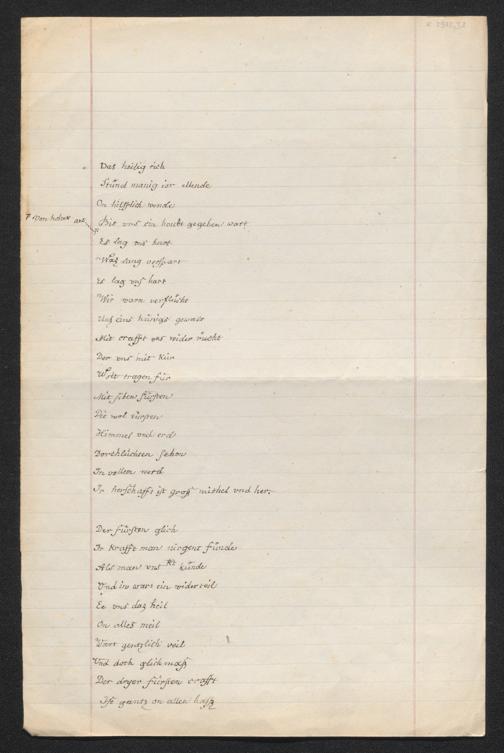 Das heilig rich
Stünd manig iar ellende
On hilfflich wende
Von hoher art
Bis vns ein houbt gegeben wart
Es lag vns hart
Waz lang verspart
Es lag vns hart
Wir warn verflücht
Untz eins künigs gewalt
Mit crafft vns wider rücht
Der vns mit kür
Wolt tragen für
Mit siben fürsten
Die wol türsten
Himmel vnd erd
Dorchlüchten schon
In vollem werd
Ir herschafft ist gross michel vnd her.
Der fürsten glich
Ir krafft man nirgent fünde
Als man vns künde
Vnd in wart ein widerteil
Ee vns daz heil
On alles meil
Wart gentzlich veil
Vnd doch glich mass
Der dryer fürsten crafft
Ist gantz on allen hass